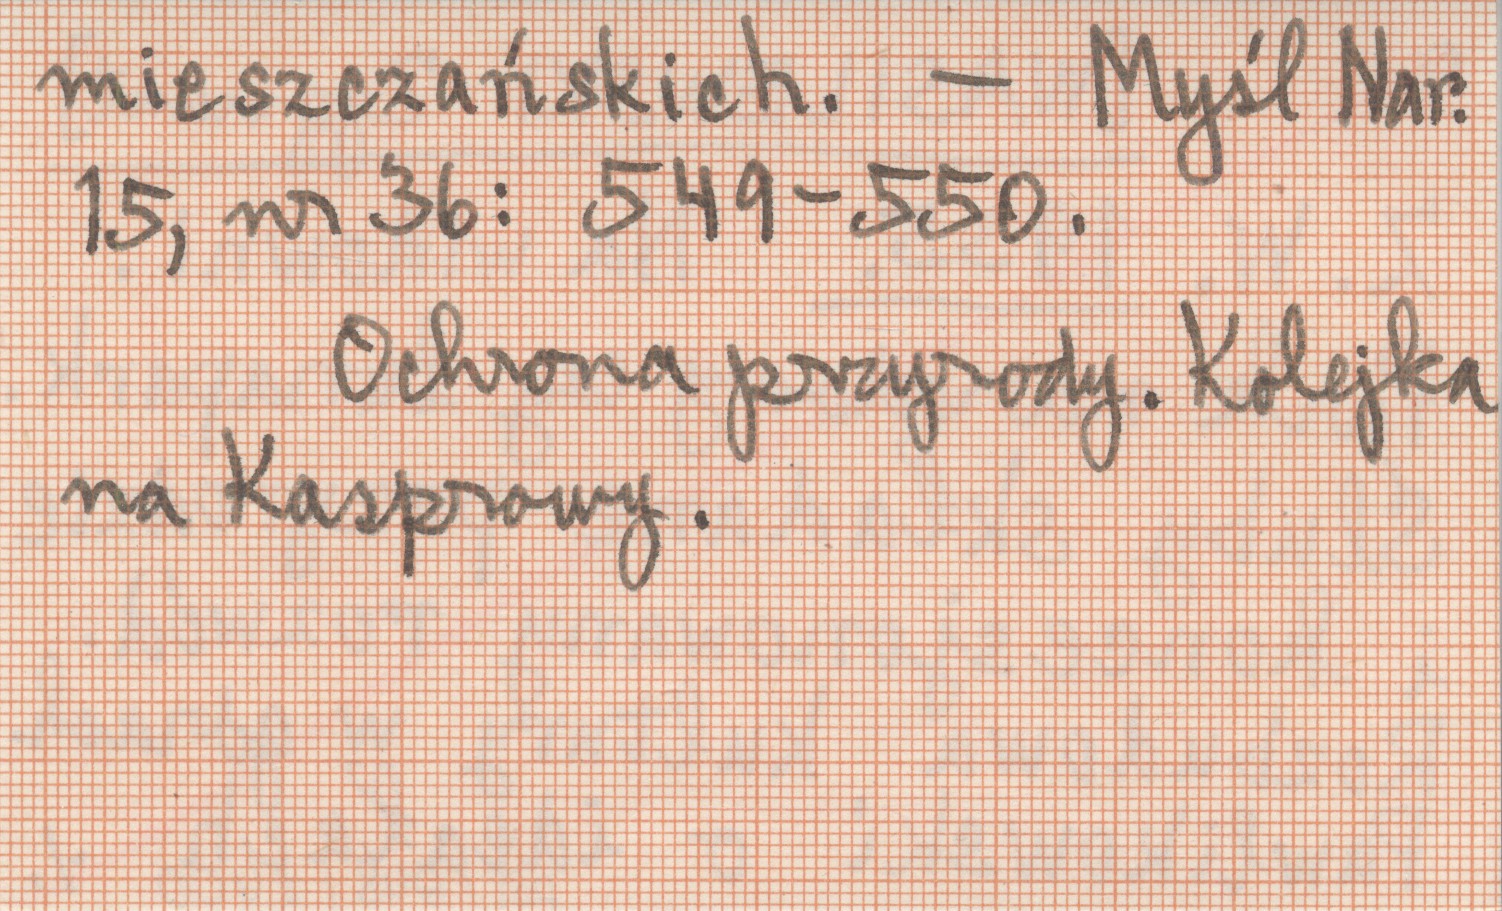 mieszczańskich. — Myśl Nar.
15, nr 36: 549-550.
Ochrona przyrody. Kolejka
na Kasprowy.